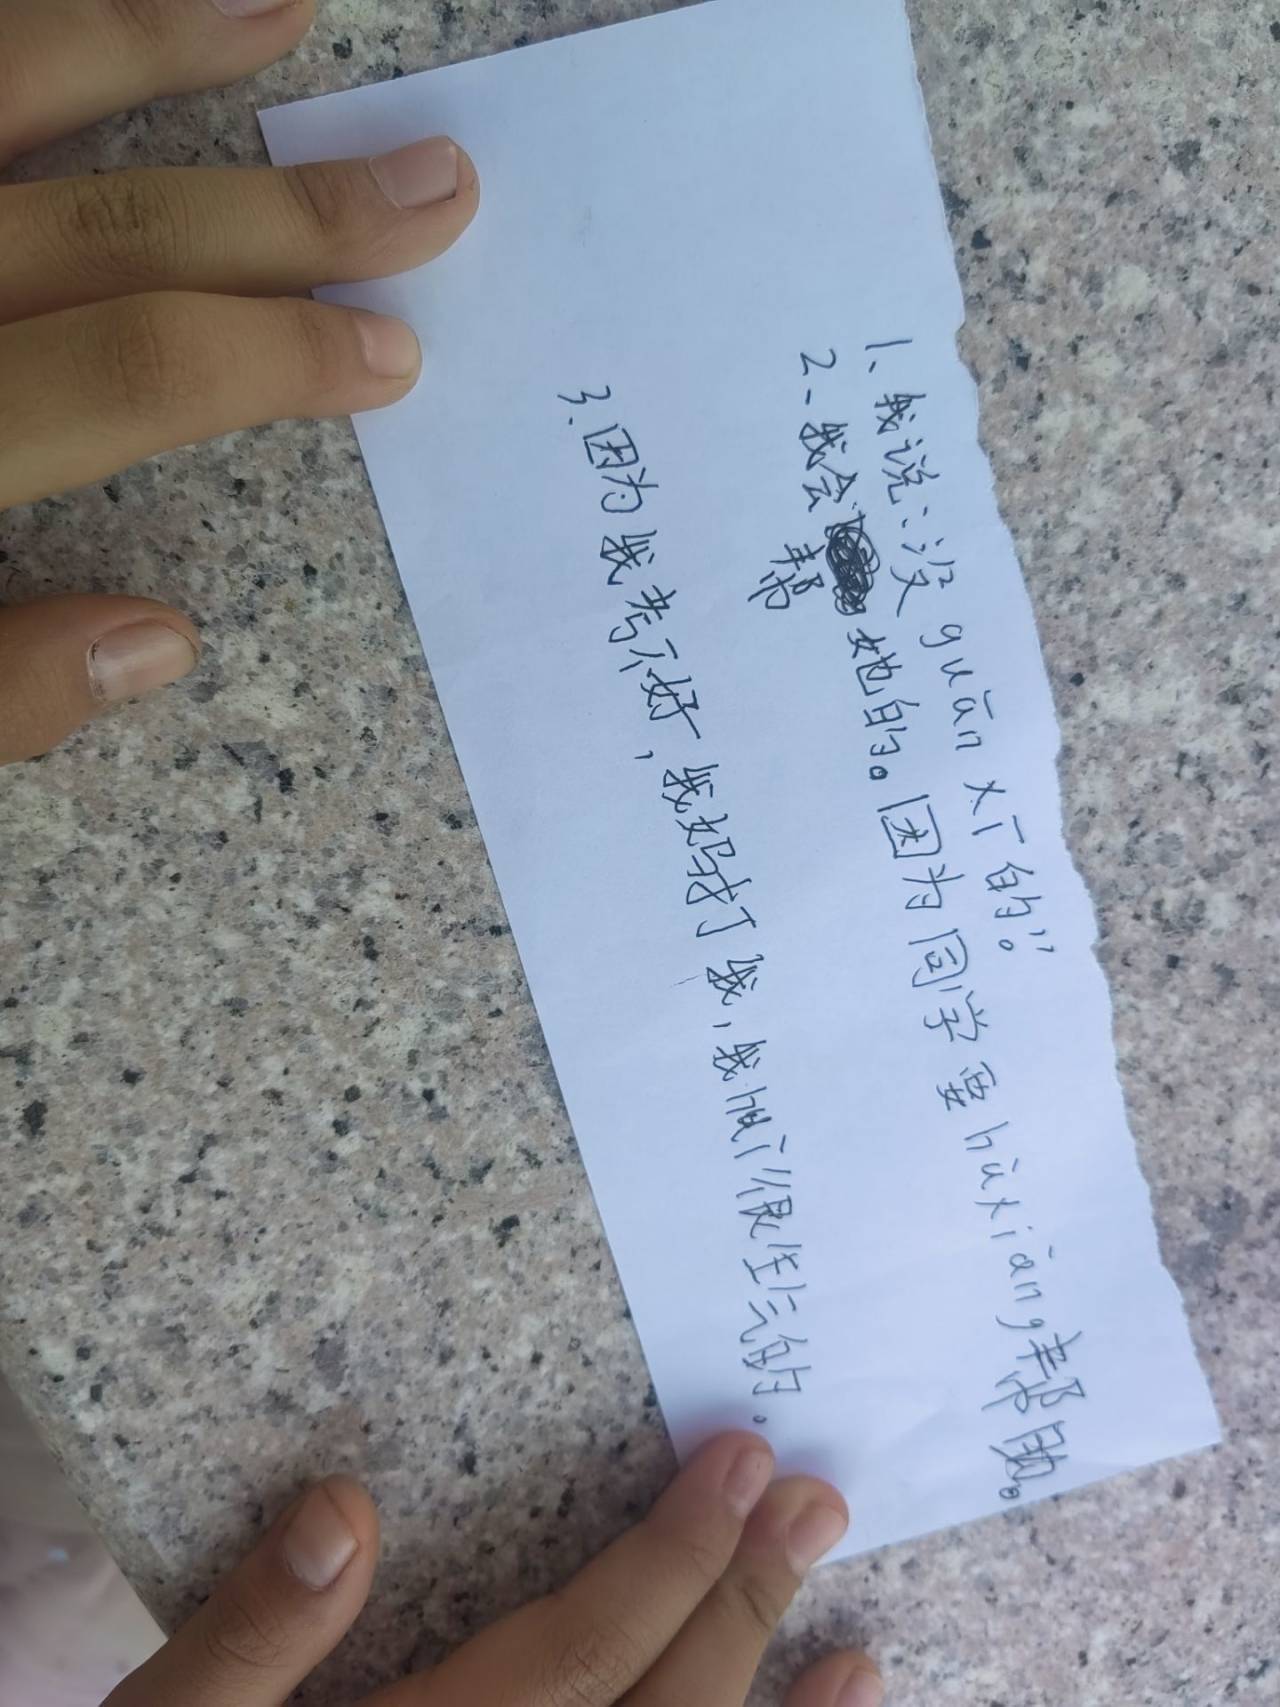 1、我说:没guān xī的。”
2、我会帮她的。因为同学要hù xiāng帮助。
3.因为我考不好,我妈打我,我很生气的.